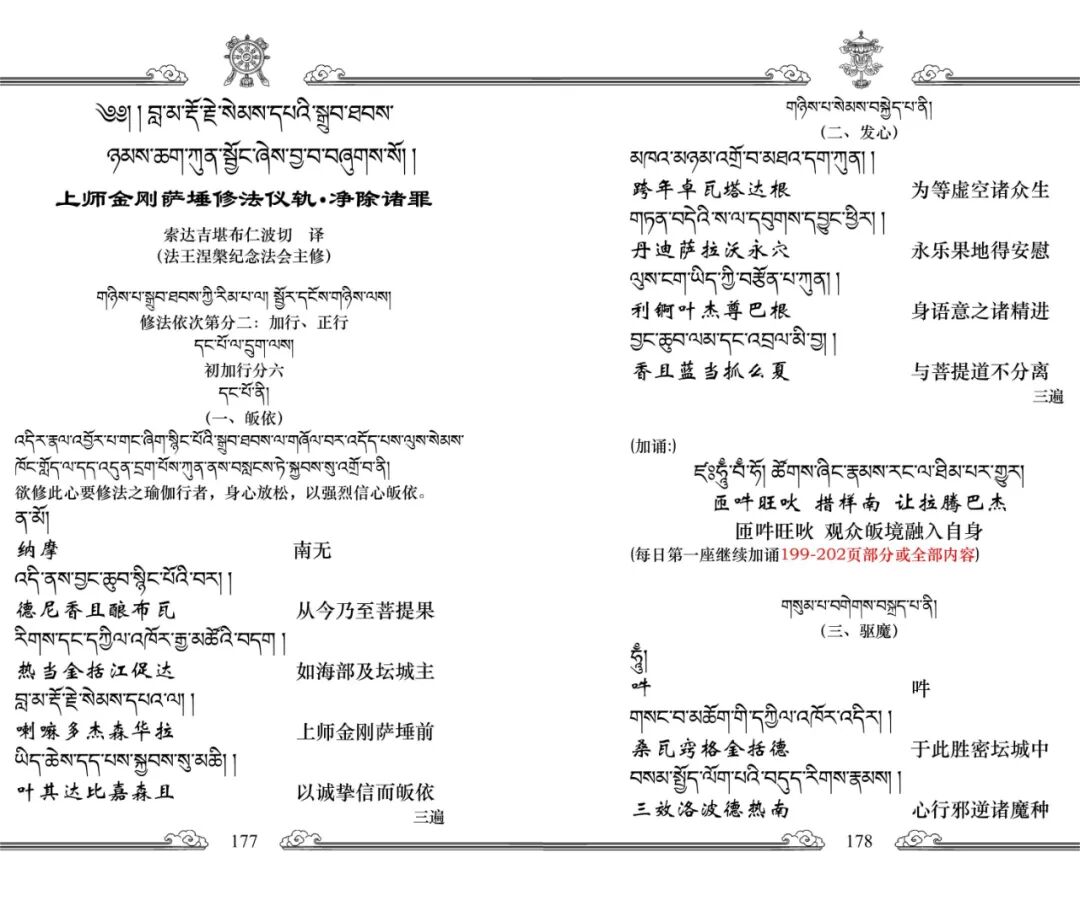 ༄༅། །བླ་མ་རྡོ་རྗེ་སེམས་དཔའི་སྒྲུབ་ཐབས་
ཉམས་ཆག་ཀུན་སྦྱོང་ཞེས་བྱ་བ་བཞུགས་སོ། །
上师金刚萨埵修法仪轨·净除诸罪
索达吉堪布仁波切 译
(法王涅槃纪念法会主修)
གཉིས་པ་སྒྲུབ་ཐབས་ཀྱི་རིམ་པ་ལ། སྦྱོར་དངོས་གཉིས་ལས།
修法依次第分二：加行、正行
དང་པོ་ལ་དྲུག་ལས།
初加行分六
དང་པོ་ནི།
(一、皈依)
འདིར་རྣལ་འབྱོར་པ་གང་ཞིག་སྙིང་པོའི་སྒྲུབ་ཐབས་ལ་གཞོལ་བར་འདོད་པས་ལུས་སེམས་
ཁོང་གློད་ལ་དད་འདུན་དྲག་པོས་ཀུན་ནས་བསླངས་ཏེ་སྐྱབས་སུ་འགྲོ་བ་ནི།
欲修此心要修法之瑜伽行者，身心放松，以强烈信心皈依。
ན་མོ།
纳摩 南无
འདི་ནས་བྱང་ཆུབ་སྙིང་པོའི་བར། །
德尼香且酿布瓦 从今乃至菩提果
རིགས་དང་དཀྱིལ་འཁོར་རྒྱ་མཚོའི་བདག །
热当金括江促达 如海部及坛城主
བླ་མ་རྡོ་རྗེ་སེམས་དཔའ་ལ། །
喇嘛多杰森华拉 上师金刚萨埵前
ཡིད་ཆེས་དད་པས་སྐྱབས་སུ་མཆི། །
叶其达比嘉森且 以诚挚信而皈依
三遍
177
གཉིས་པ་སེམས་བསྐྱེད་པ་ནི།
(二、发心)
མཁའ་མཉམ་འགྲོ་བ་མཐའ་དག་ཀུན། །
跨年卓瓦塔达根 为等虚空诸众生
གཏན་བདེའི་ས་ལ་དབུགས་དབྱུང་ཕྱིར། །
丹迪萨拉沃永穴 永乐果地得安慰
ལུས་ངག་ཡིད་ཀྱི་བརྩོན་པ་ཀུན། །
利锕叶杰尊巴根 身语意之诸精进
བྱང་ཆུབ་ལམ་དང་འབྲལ་མི་བྱ། །
香且蓝当抓么夏 与菩提道不分离
三遍
(加诵:)
ཛཿཧཱུྃ་བཾ་ཧོ། ཚོགས་ཞིང་རྣམས་རང་ལ་ཐིམ་པར་གྱུར།
匝吽旺吙 措样南 让拉腾巴杰
匝吽旺吙 观众皈境融入自身
(每日第一座继续加诵199-202页部分或全部内容)
གསུམ་པ་བགེགས་བསྐྲད་པ་ནི།
(三、驱魔)
ཧཱུྃ།
吽 吽
གསང་བ་མཆོག་གི་དཀྱིལ་འཁོར་འདིར། །
桑瓦窍格金括德 于此胜密坛城中
བསམ་སྦྱོད་ལོག་པའི་བདུད་རིགས་རྣམས། །
三效洛波德热南 心行邪逆诸魔种
178